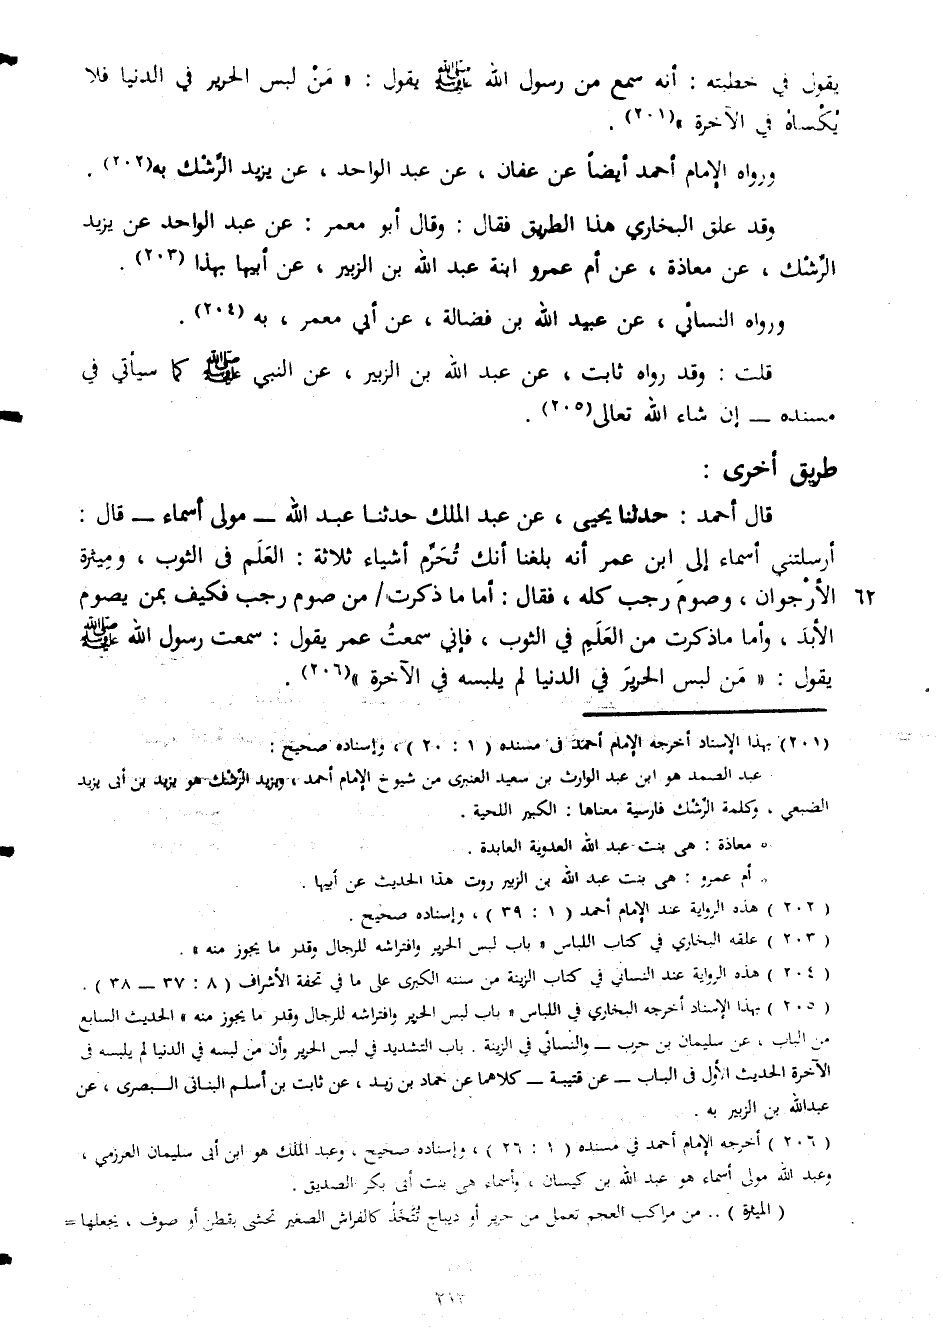 يقول في خطبته : أنه سمع من رسول الله ﷺ يقول : « مَنْ لبس الحرير في الدنيا فلا
يُكْساهُ في الآخرة »(٢٠١) .
ورواه الإمام أحمد أيضاً عن عفان ، عن عبد الواحد ، عن يزيد الرِّشْك به(٢٠٢) .
وقد علق البخاري هذا الطريق فقال : وقال أبو معمر : عن عبد الواحد عن يزيد
الرِّشْك ، عن معاذة ، عن أم عمرو ابنة عبد الله بن الزبير ، عن أبيها بهذا (٢٠٣) .
ورواه النسائي ، عن عبيد الله بن فضالة ، عن أبي معمر ، به (٢٠٤) .
قلت : وقد رواه ثابت ، عن عبد الله بن الزبير ، عن النبي ﷺ كما سيأتي في
مسنده ــ إن شاء الله تعالى(٢٠٥) .
طريق أخرى :
قال أحمد : حدثنا يحيى ، عن عبد الملك حدثنا عبد الله ــ مولى أسماء ــ قال :
أرسلتني أسماء إلى ابن عمر أنه بلغنا أنك تُحَرِّم أشياء ثلاثة : العَلَم فى الثوب ، ومِيثرة
الأرْجوان ، وصومَ رجب كله ، فقال : أما ما ذكرت/ من صوم رجب فكيف بمن يصوم ٦٢
الأبدَ ، وأما ماذكرت من العَلَمِ في الثوب ، فإني سمعتُ عمر يقول : سمعت رسول الله ﷺ
يقول : « مَن لبس الحريرَ في الدنيا لم يلبسه في الآخرة »(٢٠٦) .
(٢٠١) بهذا الإسناد أخرجه الإمام أحمد فى مسنده ( ١ : ٢٠ ) ، وإسناده صحيح :
عبد الصمد هو ابن عبد الوارث بن سعيد العنبرى من شيوخ الإمام أحمد ، ويزيد الرِّشْك هو يزيد بن أبى يزيد
الضبعي ، وكلمة الرِّشْك فارسية معناها : الكبير اللحية .
ه معاذة : هى بنت عبد الله العدوية العابدة .
ه أم عمرو : هى بنت عبد الله بن الزبير روت هذا الحديث عن أبيها .
( ٢٠٢ ) هذه الرواية عند الإمام أحمد ( ١ : ٣٩ ) ، وإسناده صحيح .
( ٢٠٣ ) علقه البخاري في كتاب اللباس « باب لبس الحرير وافتراشه للرجال وقدر ما يجوز منه » .
( ٢٠٤ ) هذه الرواية عند النسائي في كتاب الزينة من سننه الكبرى على ما في تحفة الأشراف ( ٨ : ٣٧ ــ ٣٨ ) .
( ٢٠٥ ) بهذا الإسناد أخرجه البخاري في اللباس « باب لبس الحرير وافتراشه للرجال وقدر ما يجوز منه » الحديث السابع
من الباب ، عن سليمان بن حرب ــ والنسائي في الزينة . باب التشديد في لبس الحرير وأن من لبسه في الدنيا لم يلبسه فى
الآخرة الحديث الأول فى الباب ــ عن قتيبة ــ كلاهما عن حماد بن زيد ، عن ثابت بن أسلم البنانى البصرى ، عن
عبدالله بن الزبير به .
( ٢٠٦ ) أخرجه الإمام أحمد في مسنده ( ١ : ٢٦ ) ، وإسناده صحيح ، وعبد الملك هو ابن أبى سليمان العرزمي ،
وعبد الله مولى أسماء هو عبد الله بن كيسان ، وأسماء هى بنت أبى بكر الصديق .
( الميثرة ) .. من مراكب العجم تعمل من حرير أو ديباج تُتَّخَذُ كالفراش الصغير تحشى بقطن أو صوف ، يجعلها =
٢١٣